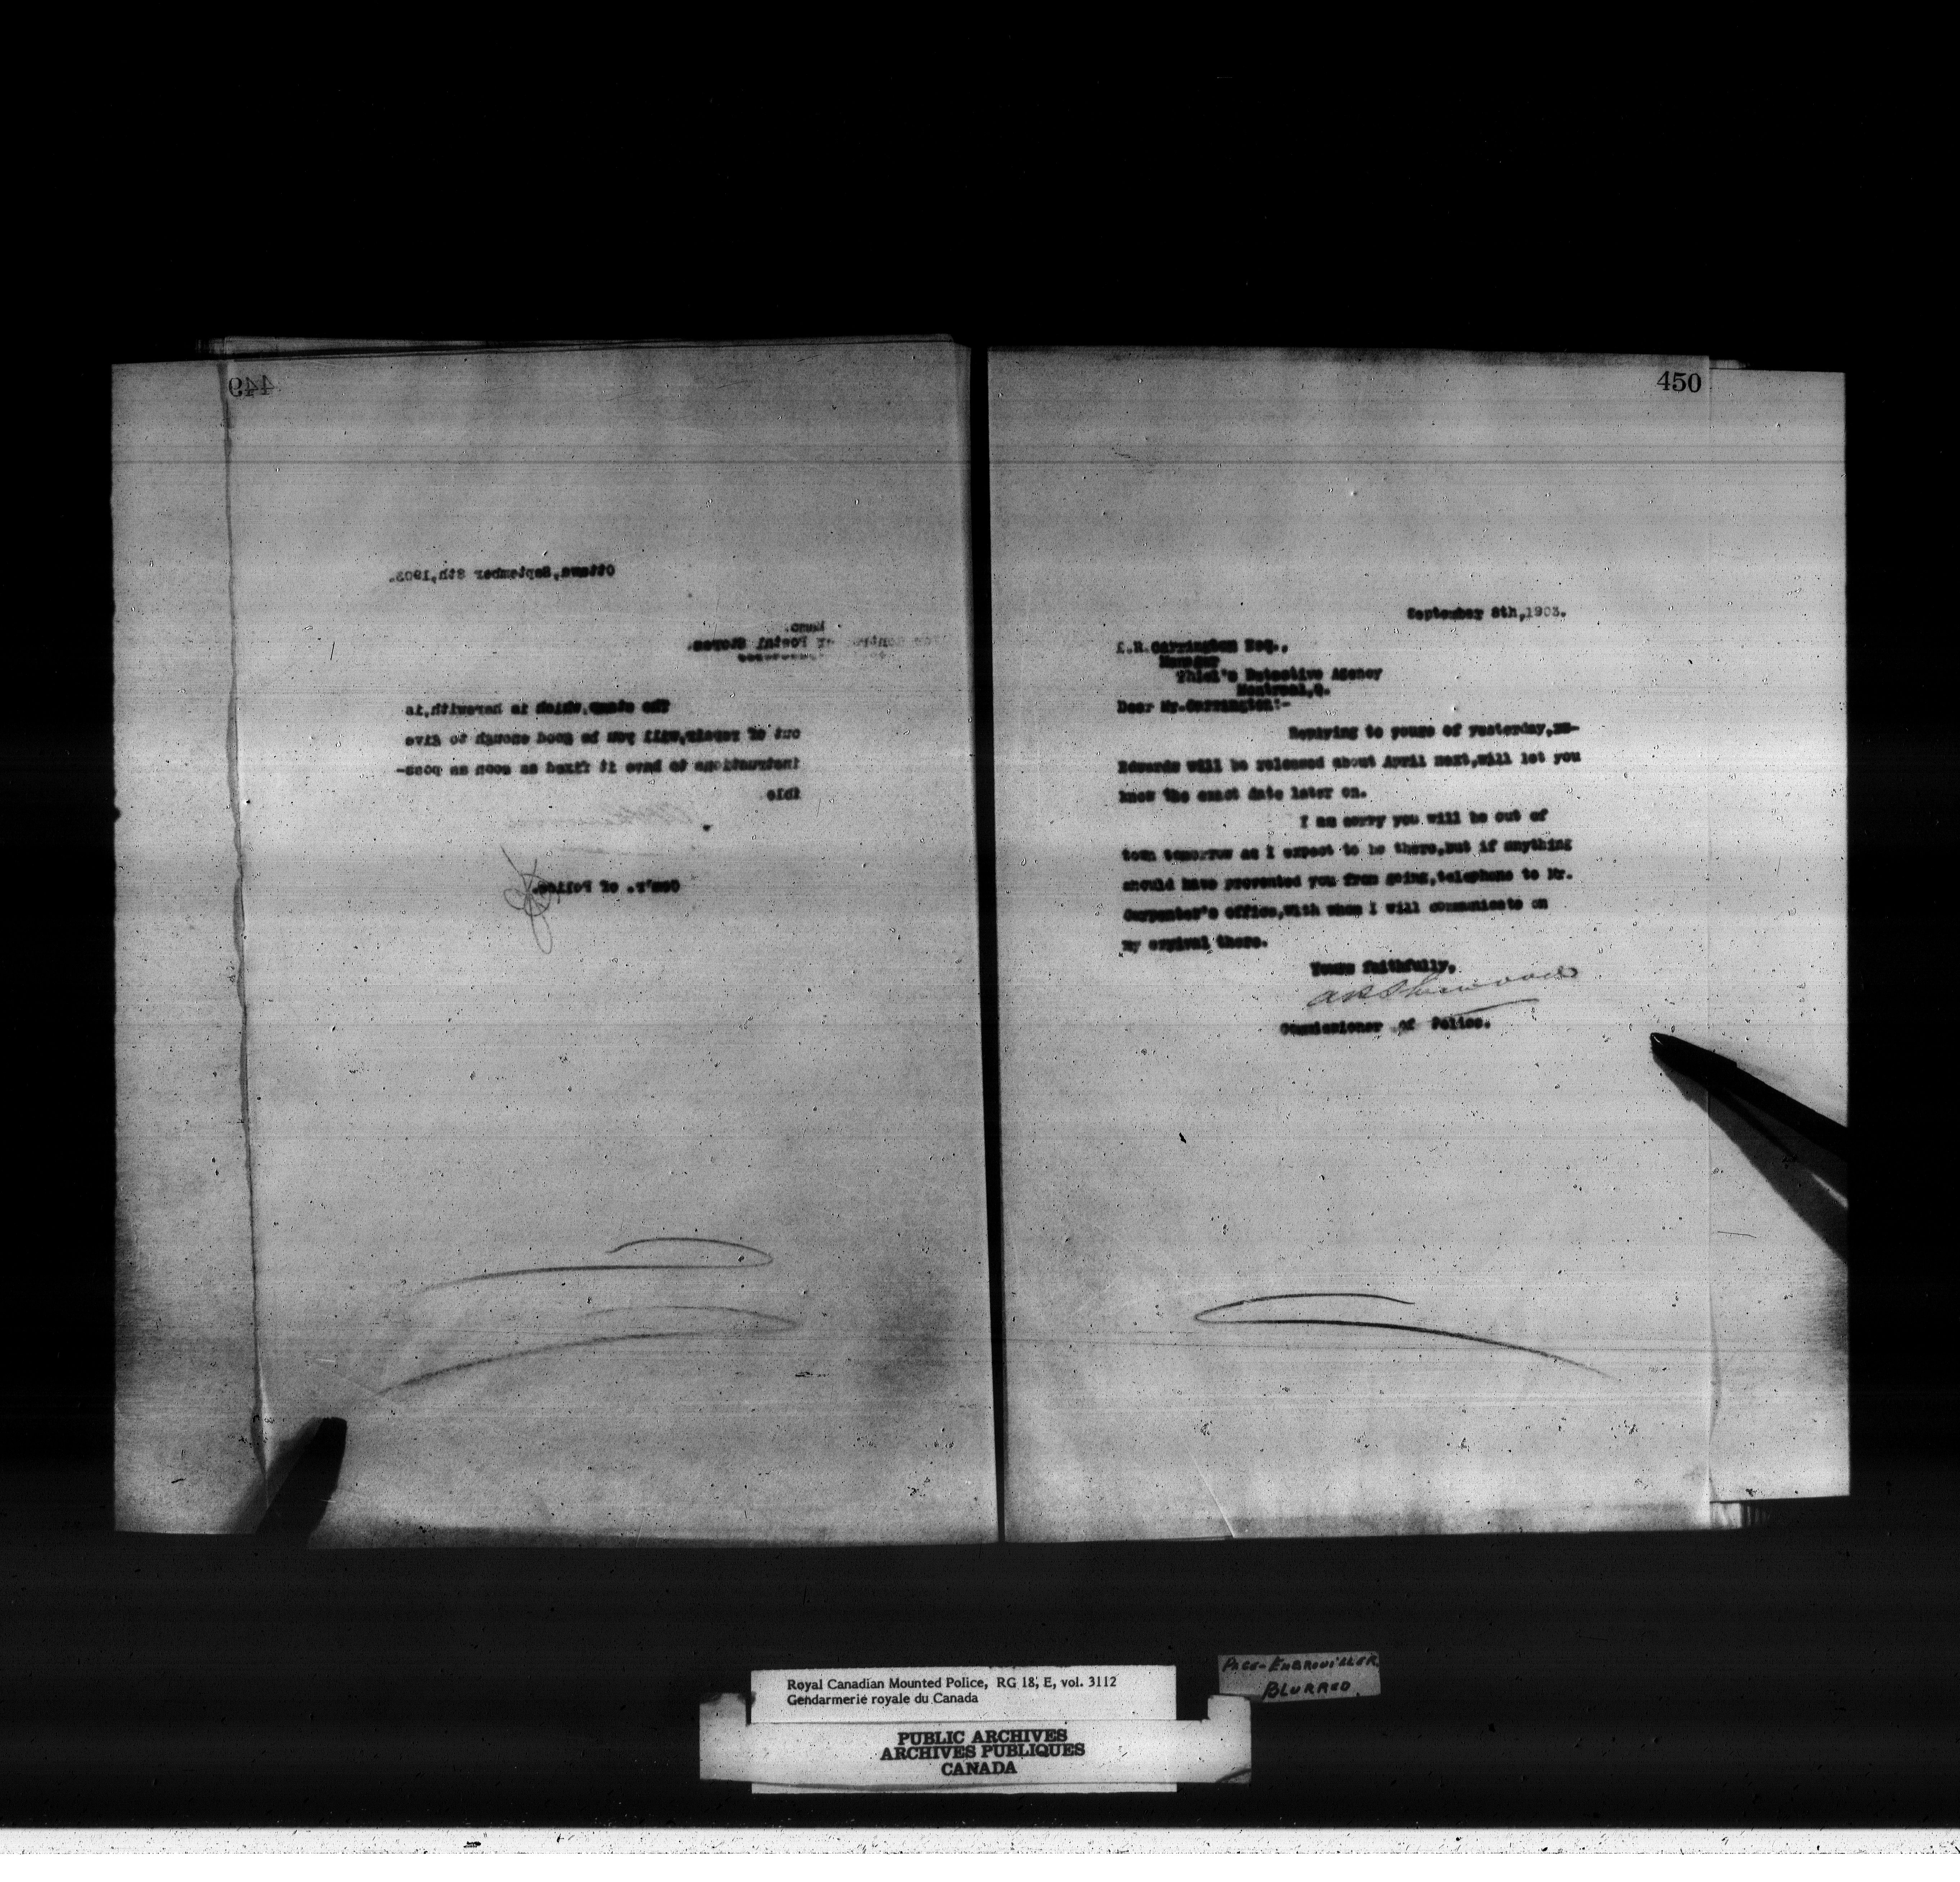 449
Ottawa,September 8th,1903.
Memo.
Postal Stores.
The stamp,which is herewith,is
out of repair,will you be good enough to give
instructions to have it fixed as soon as poss-
ible.
Com'r. of Police.
450
September 8th,1903.
Carrington Esq.,
Manager
Thiel's Detective Agency
Montreal,Q.
Dear Mr.Carrington:-
Replying to yours of yesterday,
Edwards will be released about April next,will let you
know the exact date later on.
I am sorry you will be out of
town tomorrow as I expect to be there,but if anything
should have prevented you from going,telephone to Mr.
Carpenter's Office,with whom I will communicate on
my arrival there.
Yours faithfully,
A P Sherwood
Commissioner of Police.
Royal Canadian Mounted Police, RG 18, E, vol. 3112
Gendarmerie royale du Canada
PUBLIC ARCHIVES
ARCHIVES PUBLIQUES
CANADA
PAGE-EMBROUILLER
BLURRED